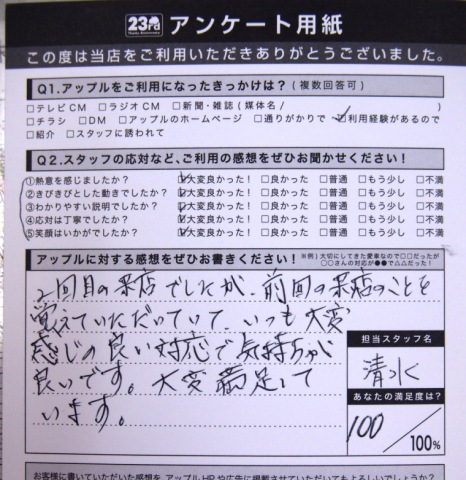 23rd アンケート用紙
Thanks Anniversary
この度は当店をご利用いただきありがとうございました。
Q1.アップルをご利用になったきっかけは?(複数回答可)
□テレビCM □ラジオCM □新聞・雑誌(媒体名/ )
□チラシ □DM □アップルのホームページ □通りがかりで ☑利用経験があるので
□紹介 □スタッフに誘われて
Q2.スタッフの応対など、ご利用の感想をぜひお聞かせください!
①熱意を感じましたか? ☑大変良かった! □良かった □普通 □もう少し □不満
②きびきびとした動きでしたか? ☑大変良かった! □良かった □普通 □もう少し □不満
③わかりやすい説明でしたか? ☑大変良かった! □良かった □普通 □もう少し □不満
④応対は丁寧でしたか? ☑大変良かった! □良かった □普通 □もう少し □不満
⑤笑顔はいかがでしたか? ☑大変良かった! □良かった □普通 □もう少し □不満
アップルに対する感想をぜひお書きください! ※例)大切にしてきた愛車なので□□だったが
○○さんの対応が●●で△△だった!
2回目の来店でしたが、前回の来店のことを
覚えていただいていて、いつも大変
感じの良い対応で気持ちが
良いです。大変満足して
います。
担当スタッフ名
清水
あなたの満足度は?
100/100%
お客様に書いていただいた感想を、アップルHPや広告に掲載させていただいてもよろしいでしょうか?